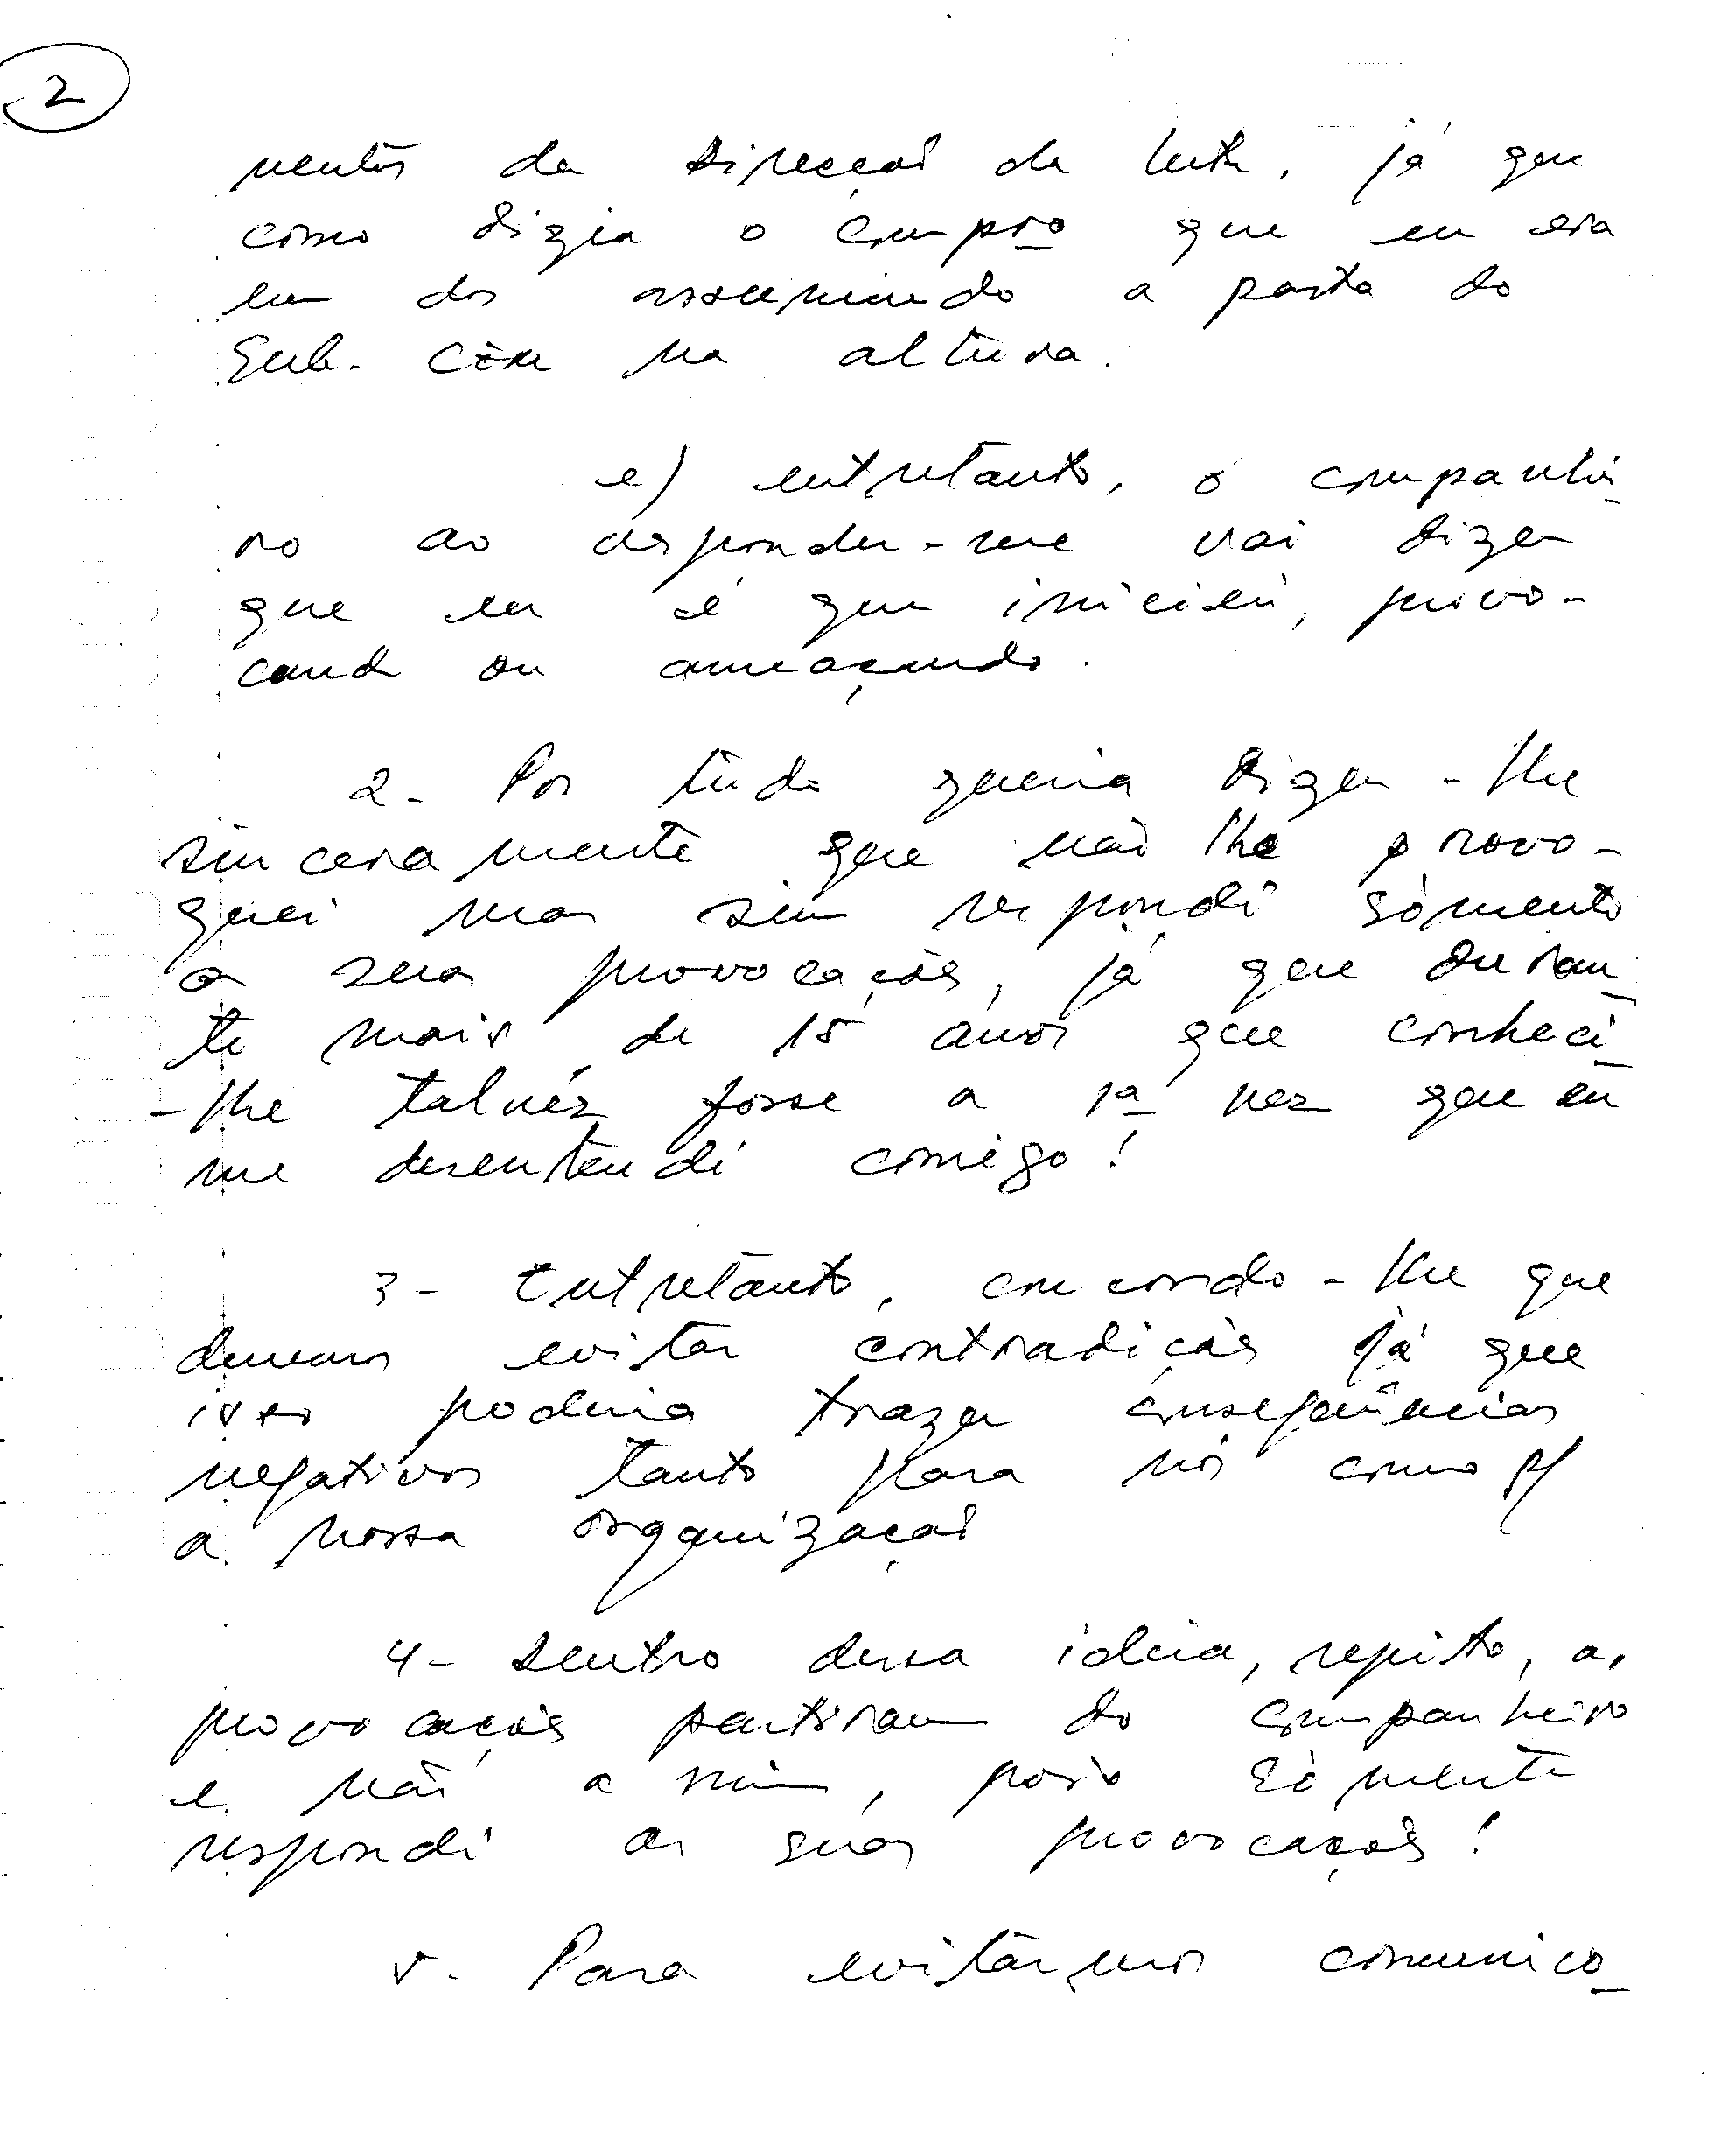 2
mentos da Direcção da luta, já que
como dizia o compro que eu era
um dos assumindo a pasta do
Sub. Com na altura.
e) entretanto, o companhei
ro ao responder-me vai dizer
que eu é que iniciei, provo-
cando ou ameaçando.
2- Por tudo queria dizer-lhe
sinceramente que não lhe provo-
quei mas sim respondi sómente
as suas provocações, já que duran
te mais de 15 anos que conheci
-lhe talvez fosse a 1ª vez que eu
me desentendi comigo!
3- Entretanto, concordo-lhe que
devemos evitar contradições já que
isso poderia trazer consequências
negativos tanto para nós como p/
a nossa organização
4- Dentro dessa ideia, repito, as
provocações partiram do companheiro
e não a mim, pois sómente
respondi as suas provocações!
5- Para evitarmos comunico